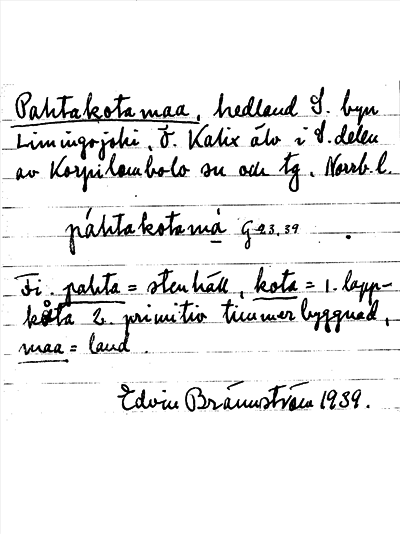 Pahtakotamaa, hedland S. byn
Limingojoki, Ö. Kalix älv i S. delen
av Korpilombolo sn och tg, Norrb. l.
páhtakotamá G 23.39
Fi. pahta = stenhäll, kota = 1. lapp-
kåta 2. primitiv timmerbyggnad,
maa = land.
Edvin Brännström 1939.